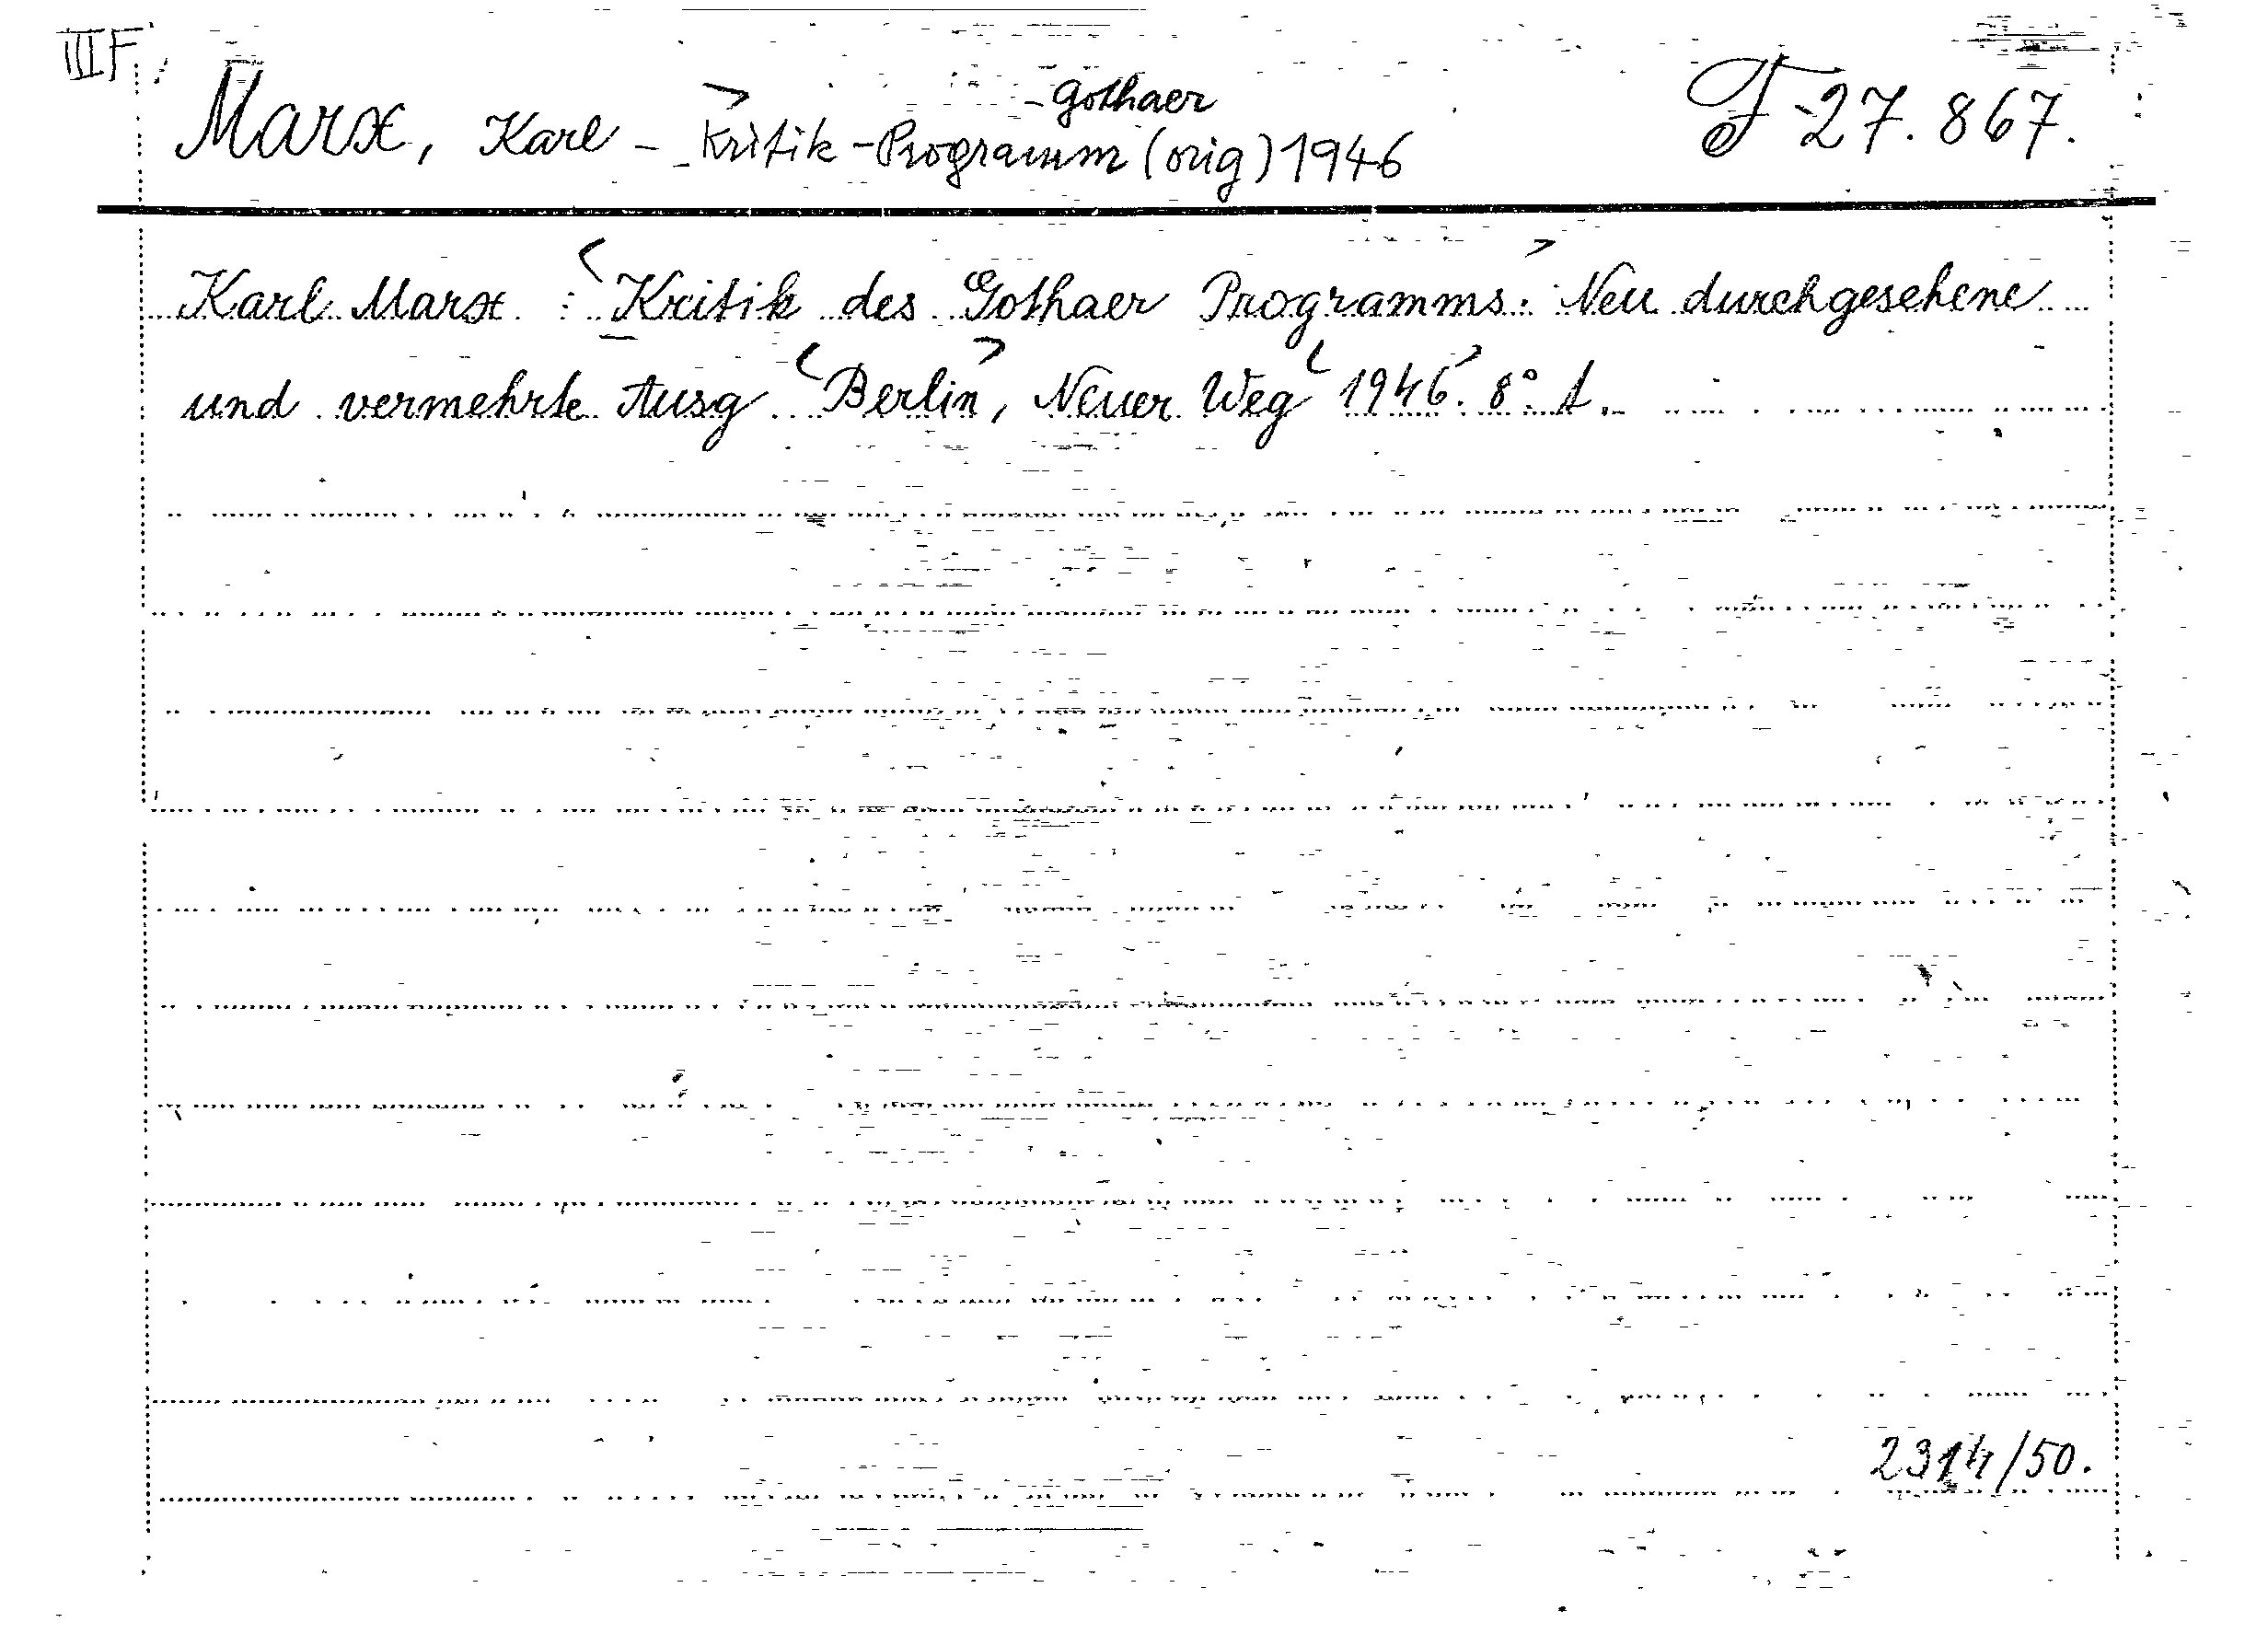 III F
Marx, Karl - Kritik - Gothaer - Programm (orig) 1946 F 27.867.
Karl Marx : <Kritik des Gothaer Programms.> Neu durchgesehene
und vermehrte Ausg <Berlin>, Neuer Weg <1946.> 8°.
2314/50.